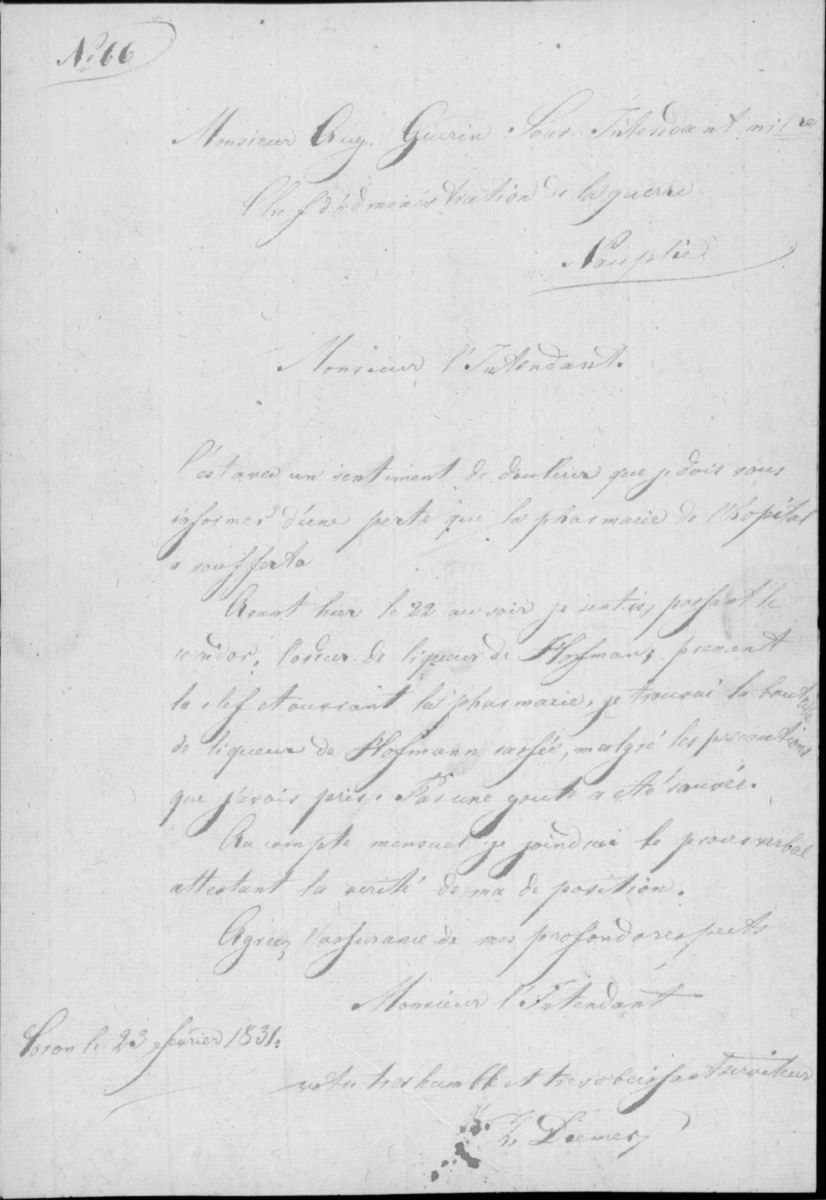 No. 66
Monsieur Aug. Guerin Sous-Intendant milre
Chef d'administration de la guerre
Nauplie
Monsieur l'Intendant.
C'est avec un sentiment de douleur que je dois vous
informer d'une perte que la pharmacie de l'hopital
a soufferte
Avant hier le 22 au soir je sentis, passant le
corridor, l'odeur de liqueur de Hofman; prenant
la clef et ouvrant la pharmacie, je trouvai la bouteille
de liqueur de Hofmann cassée, malgré les precautions
que j'avois pris. Pas une goute a eté sauvée.
Au compte mensuel je joindrai le proces verbal
attestant la verité de ma deposition.
Agréez l'assurance de mes profonds respects
Monsieur l'Intendant
Coron le 23 fevrier 1831.
votre tres humble et tres obeissant serviteur
Diemer